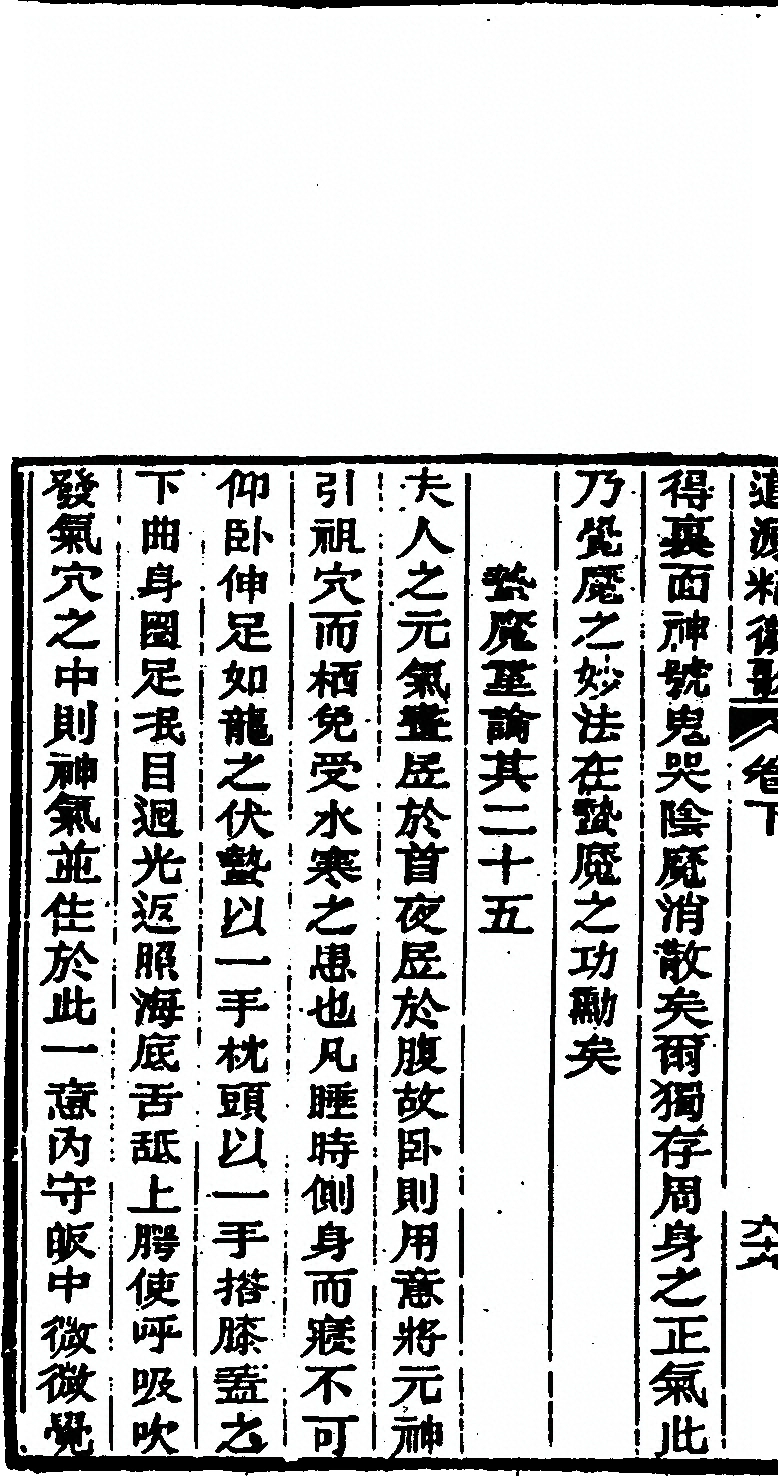 道源精微歌 卷下 六十六
得裏面神號鬼哭陰魔消散矣爾獨存周身之正氣此
乃覺魔之妙法在蟄魔之功勳矣
蟄魔至論其二十五
夫人之元氣晝居於首夜居於腹故卧則用意將元神
引祖穴而栖免受水寒之患也凡睡時側身而寢不可
仰卧伸足如龍之伏蟄以一手枕頭以一手搭膝蓋之
下曲身圈足泯目迴光返照海底舌舐上腭使呼吸吹
發氣穴之中則神氣並住於此一意內守眅中微微覺